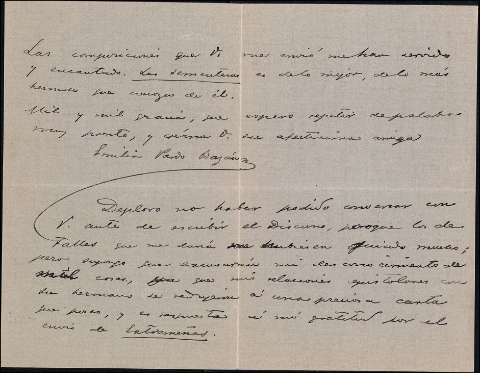 Las composiciones que V. me envió me han servido
y encantado. Las sementeras es de lo mejor, de lo más
hermoso que conozco de él.
Mil y mil gracias, que espero repetir de palabra
muy pronto, y créame V. su afectísima amiga
Emilia Pardo Bazán
Deploro no haber podido conversar con
V. antes de escribir el Discurso, porque los de
talles que me daría hubiesen mucho;
pero supongo que excusarán mi desconocimiento de
cosas, que mis relaciones epistolares con
su hermano se redujeron á una preciosa carta
que poseo, y es respuesta á mi gratitud por el
envío de Extremeñas.